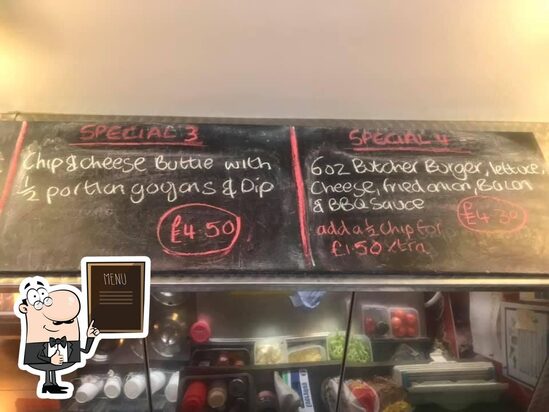 SPECIAL 3
Chip & cheese Buttie with
1/2 portion goyons & Dip
£4.50
SPECIAL 4
6oz Butcher Burger, lettuce,
Cheese, fried onion, Bacon
& BBQ Sauce
£4.30
add a 1/2 chip for
£1.50 xtra
MENU